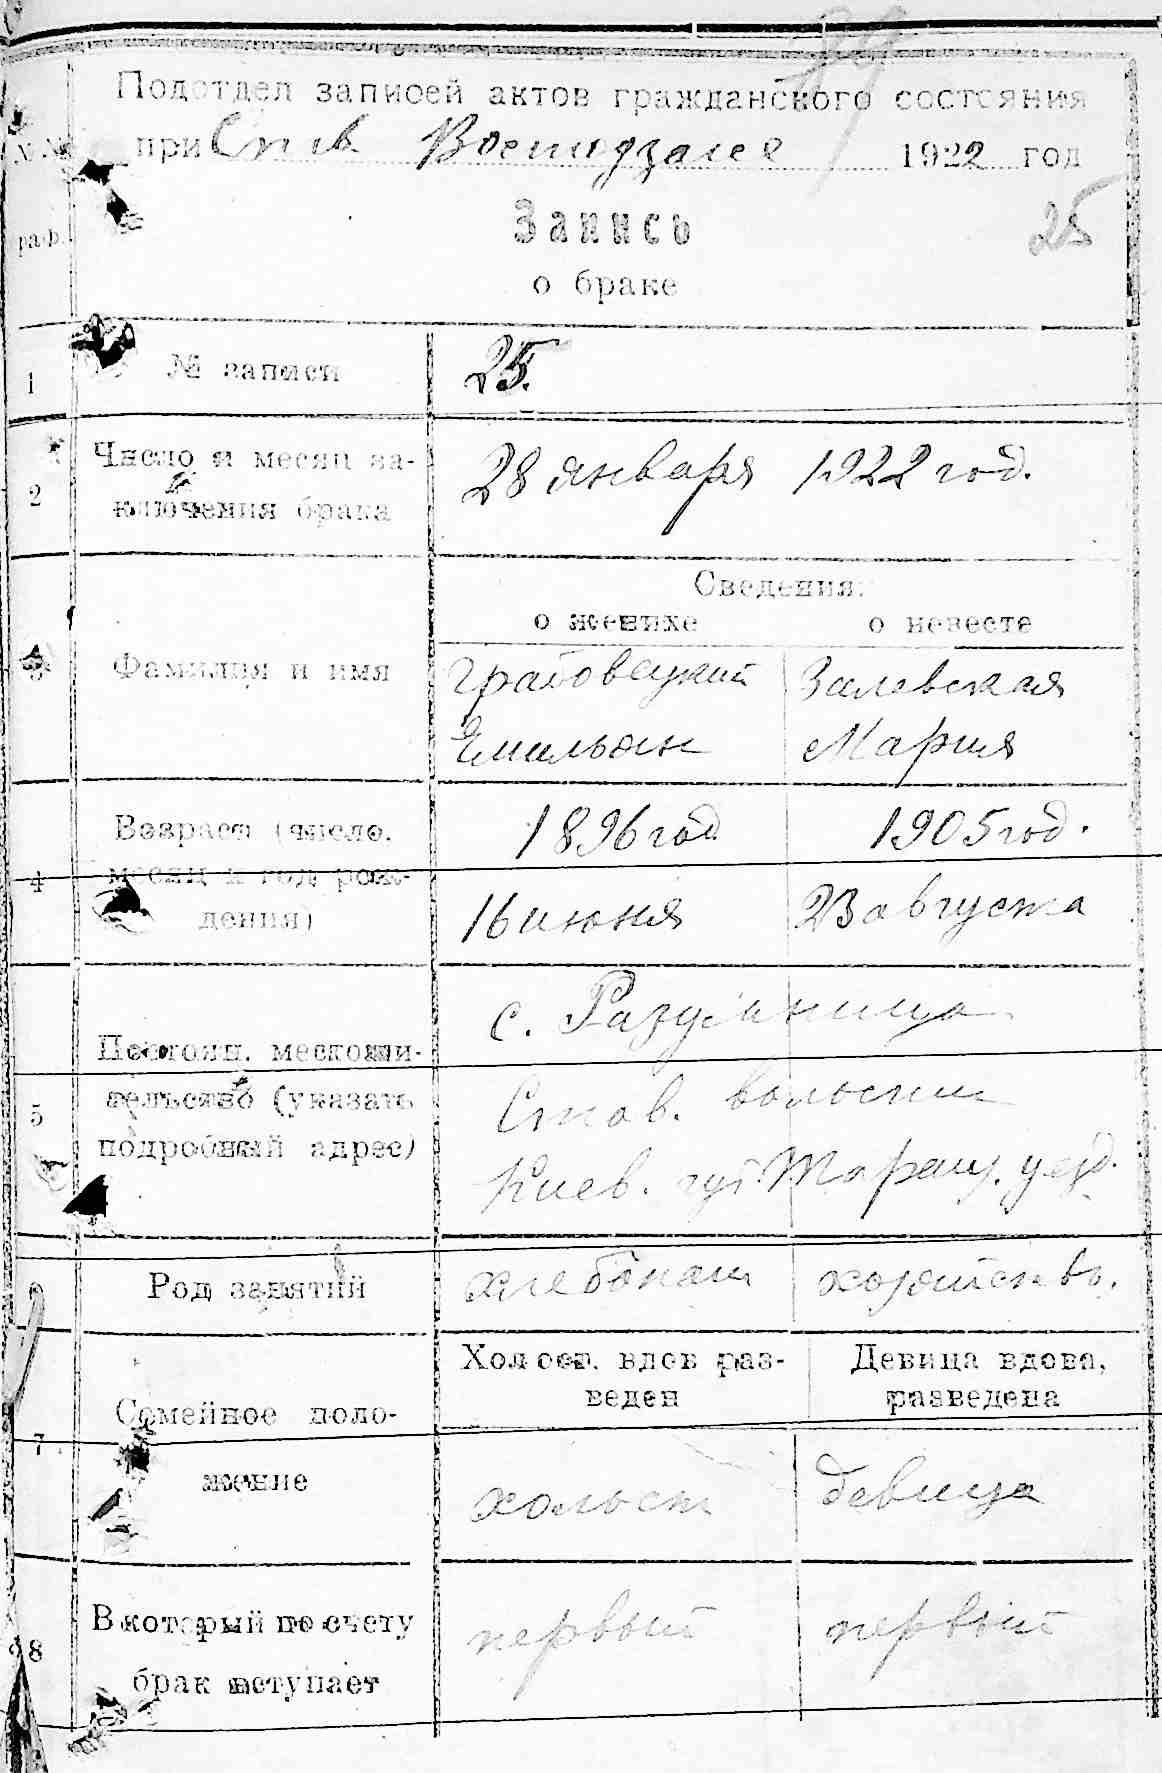 89
Подотдел записей актов гражданского состояния
при Став 1922 год
№№
граф.
Запись
25
о браке
1 № записи 25.
2 Число и месяц за-
ключения брака
28 января 1922 год.
Сведения:
о женихе о невесте
3 Фамилия и имя
Грабовецкий Залевская
Емильян Мария
4 Возраст (число,
месяц и год рож-
дения)
1896 год 1905 год.
16 июня 23 августа
5 Постоян. местожи-
тельство (указать
подробный адрес)
с. Разумница
Став. волости
Киев. губ. Таращ. уезд.
6 Род занятий хлебопаш хозяйство.
7 Семейное поло-
жение
Холост. вдов раз-
веден
Девица вдова,
разведена
хольост девица
8 В который по счету
брак вступает
первый первый